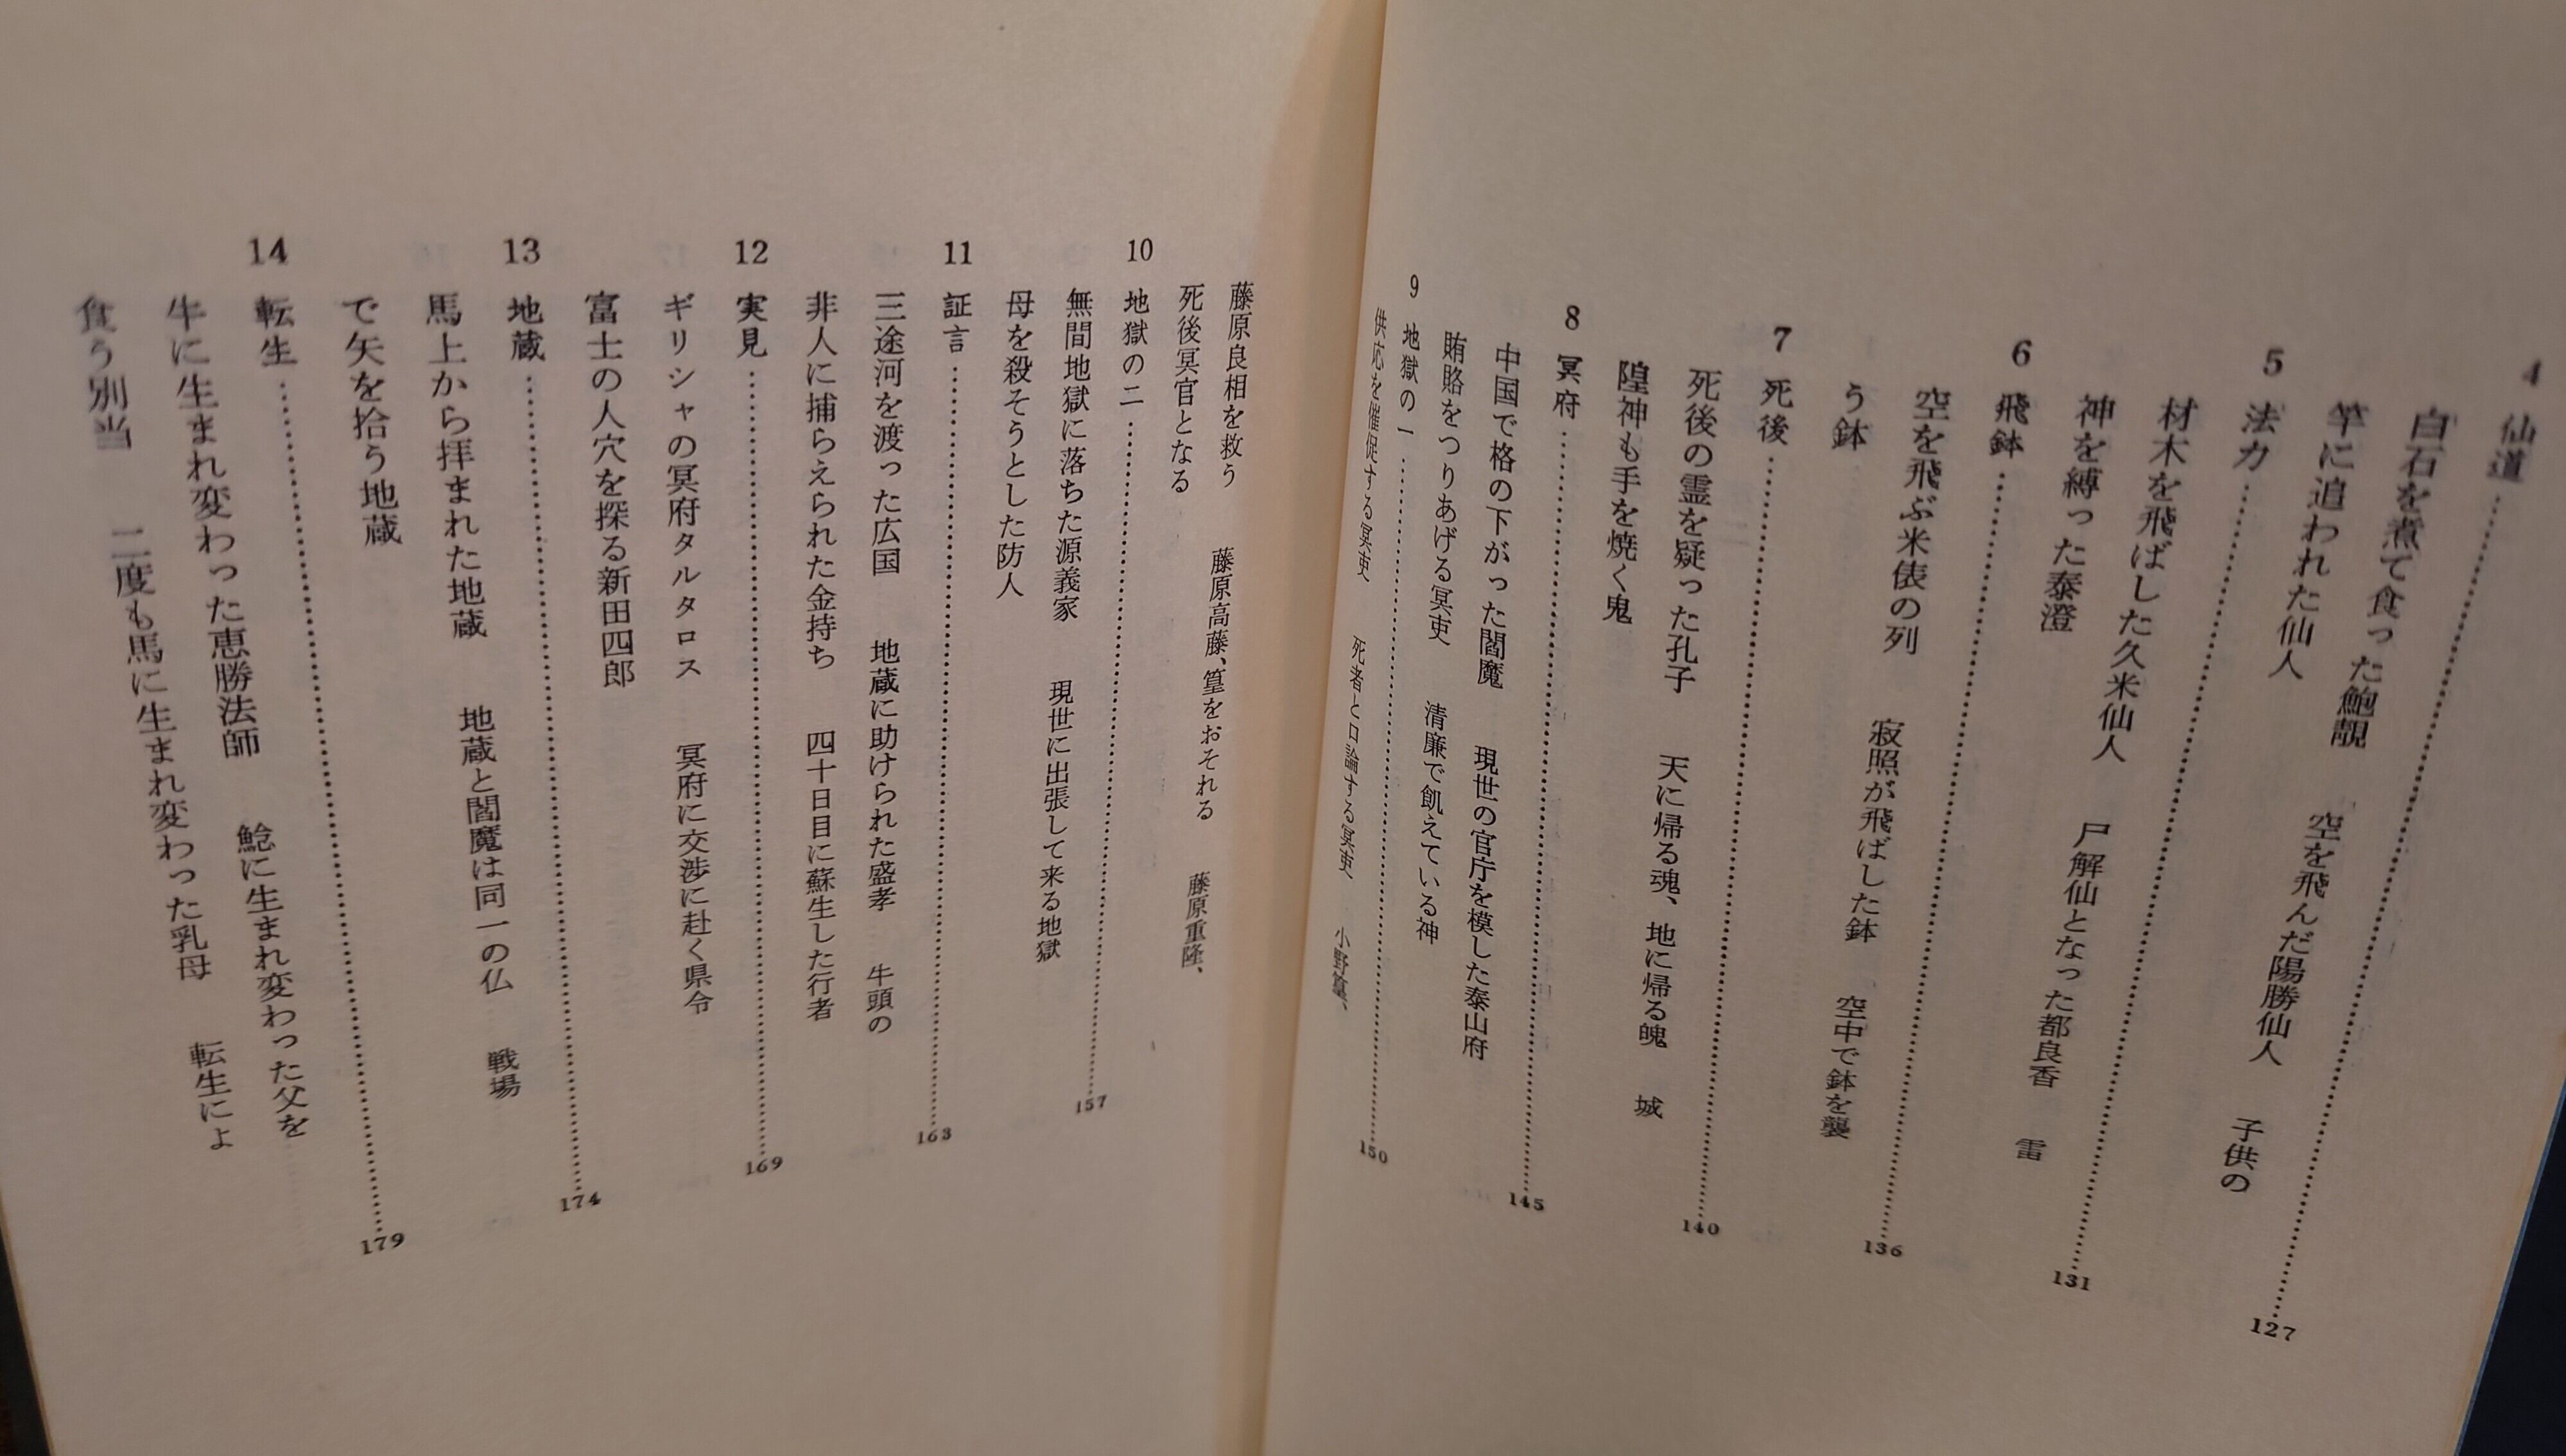 4 仙道……127
白石を煮て食った鮑靚 空を飛んだ陽勝仙人 子供の
竿に追われた仙人
5 法力……131
材木を飛ばした久米仙人 尸解仙となった都良香 雷
神を縛った泰澄
6 飛鉢……136
空を飛ぶ米俵の列 寂照が飛ばした鉢 空中で鉢を襲
う鉢
7 死後……140
死後の霊を疑った孔子 天に帰る魂、地に帰る魄 城
隍神も手を焼く鬼
8 冥府……145
中国で格の下がった閻魔 現世の官庁を模した泰山府
賄賂をつりあげる冥吏 清廉で飢えている神
9 地獄の一……150
供応を催促する冥吏 死者と口論する冥吏 小野篁、
藤原良相を救う 藤原高藤、篁をおそれる 藤原重隆、
死後冥官となる
10 地獄の二……157
無間地獄に落ちた源義家 現世に出張して来る地獄
母を殺そうとした防人
11 証言……163
三途河を渡った広国 地蔵に助けられた盛孝 牛頭の
非人に捕らえられた金持ち 四十日目に蘇生した行者
12 実見……169
ギリシャの冥府タルタロス 冥府に交渉に赴く県令
富士の人穴を探る新田四郎
13 地蔵……174
馬上から拝まれた地蔵 地蔵と閻魔は同一の仏 戦場
で矢を拾う地蔵
14 転生……179
牛に生まれ変わった恵勝法師 鯰に生まれ変わった父を
食う別当 二度も馬に生まれ変わった乳母 転生によ